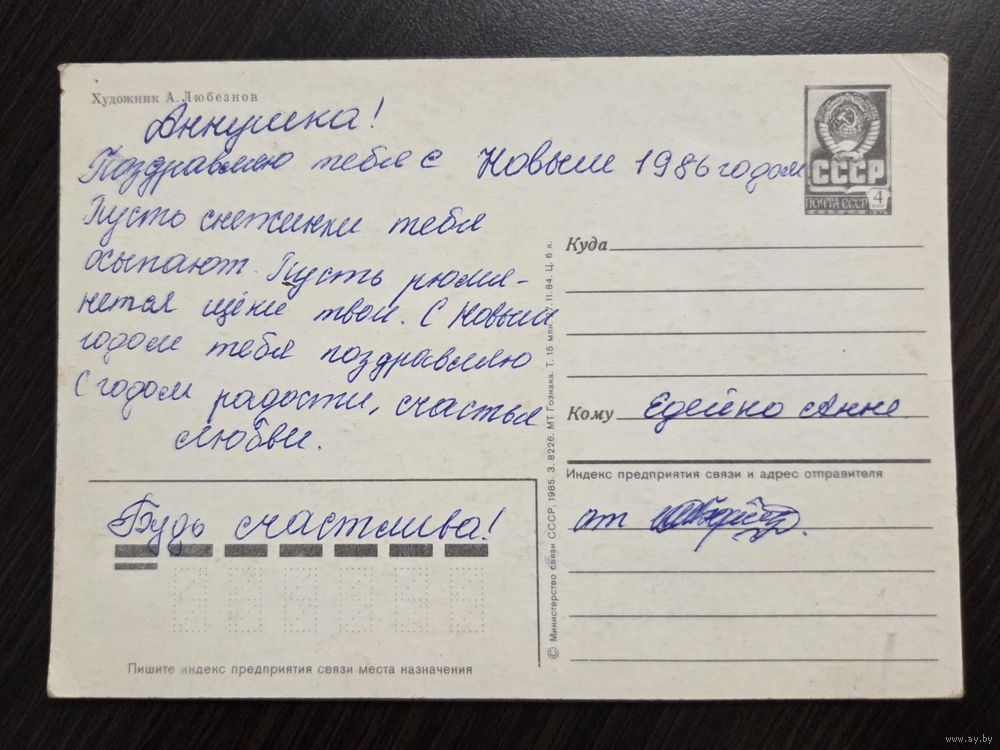 Художник А. Любезнов
Аннушка!
Поздравляю тебя с Новым 1986 годом
Пусть снежинки тебя
осыпают. Пусть румя-
нется щёки твои. С Новым
годом тебя поздравляю
С годом радости, счастья
любви.
Будь счастлива!
Пишите индекс предприятия связи места назначения
© Министерство связи СССР, 1985. З. 8226. МТ Гознака. Т. 15 млн. 27.11.84. Ц. 6 к.
СССР
ПОЧТА СССР 4
1976
Куда
Кому Едейко Анне
Индекс предприятия связи и адрес отправителя
от
www.ay.by